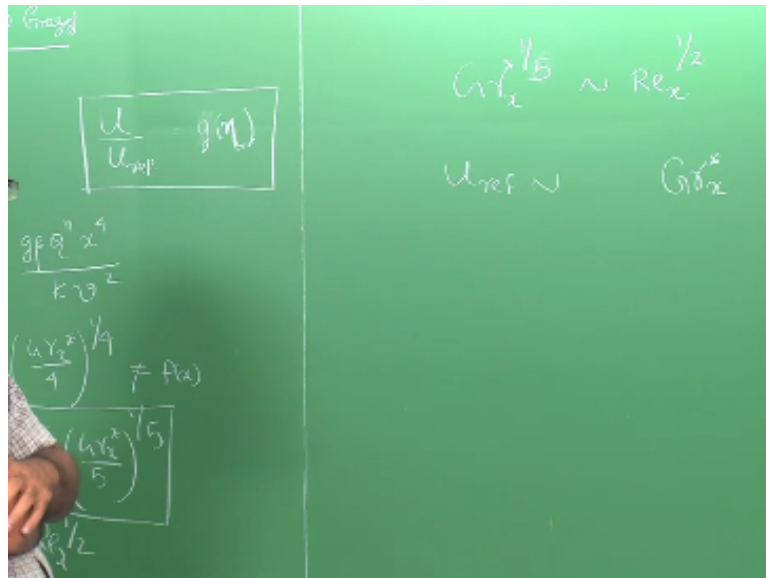 U/U_ref = g(η)
gβ q" x⁴ / K ν²
(Gr_x*/4)^1/4 ≠ f(x)
(Gr_x*/5)^1/5
Re_x^1/2
Gr_x*^1/5 ~ Re_x^1/2
U_ref ~ Gr_x*